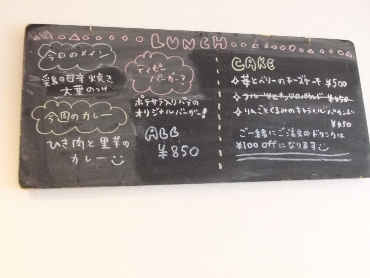 LUNCH
今日のメイン
鶏の甘辛焼き
大葉のっけ
今週のカレー
ひき肉と里芋の
カレー
ティピー
バーガー?
ポテサラ入りパテの
オリジナルバーガー!
ALL
¥850
CAKE
苺とベリーのチーズケーキ ¥500
フルーツとナッツのパウンド ¥450
りんごとくるみのキャラメルパウンド
¥450
ご一緒にご注文のドリンクは
¥100 offになります